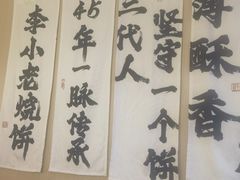 薄酥香
坚守一个饼
三代人
45年一脉传承
李小老烧饼